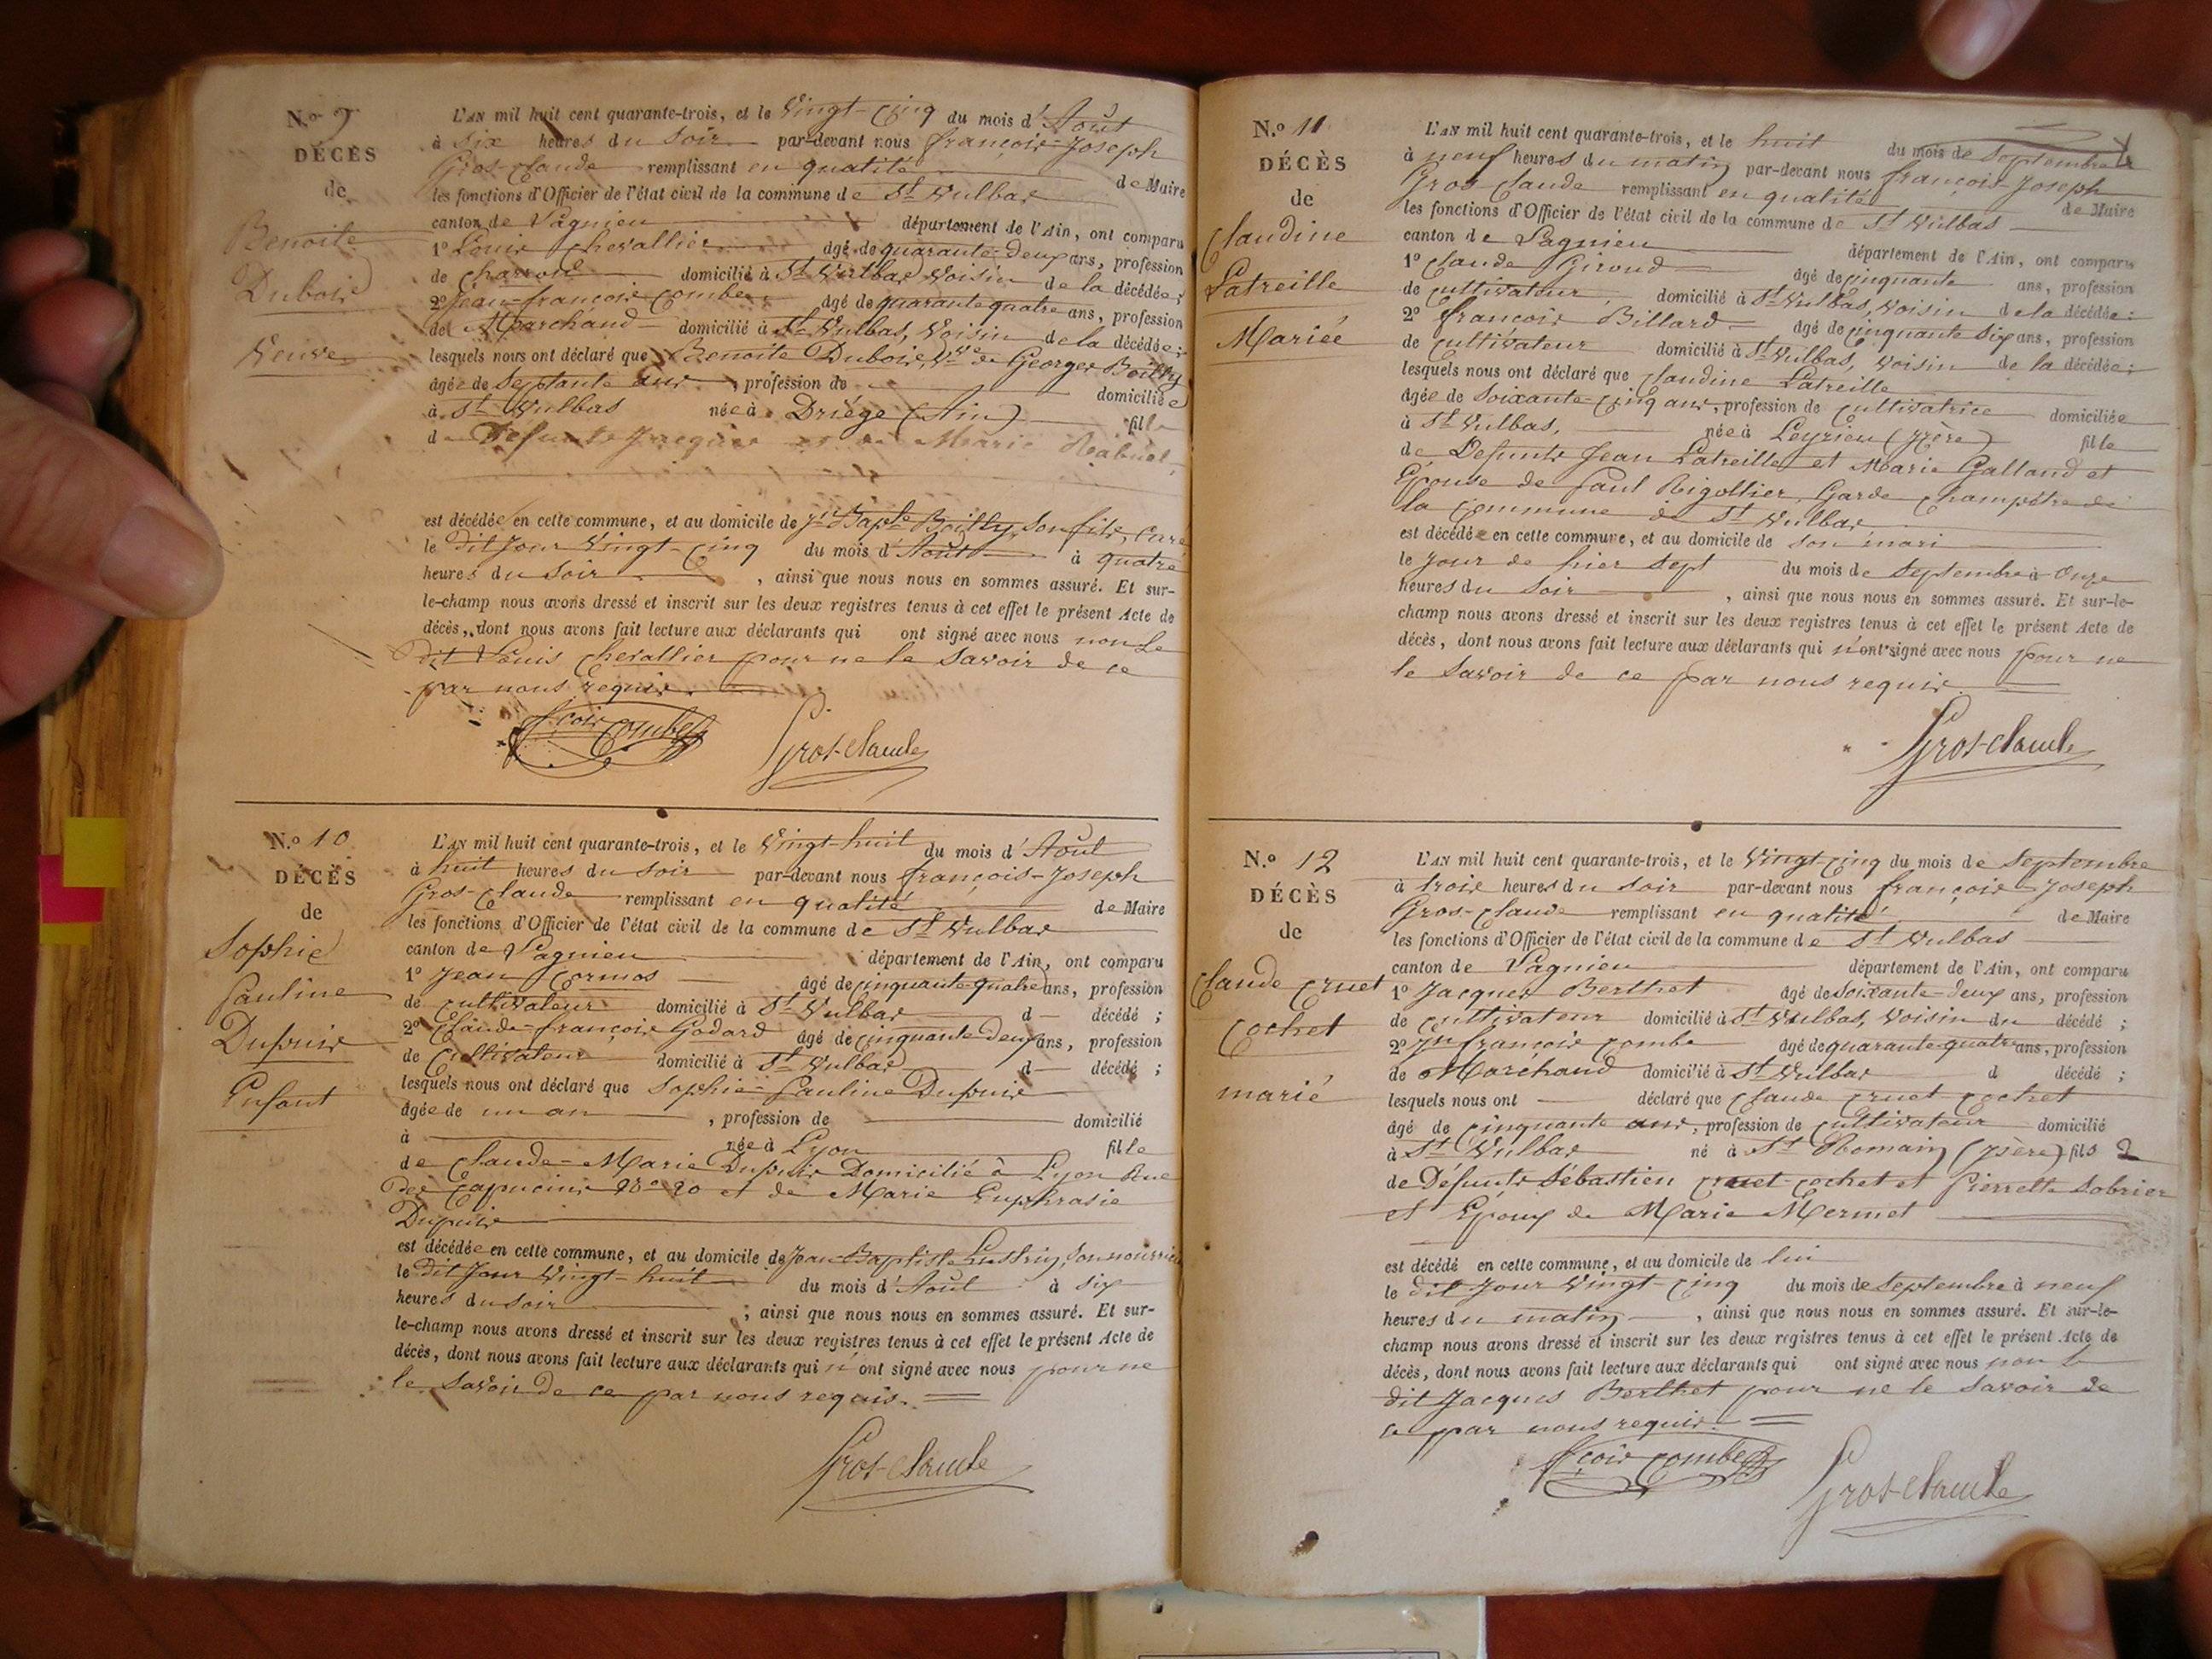 N.º 9
DÉCÈS
de
Benoite
Dubois
Veuve
L'AN mil huit cent quarante-trois, et le Vingt-cinq du mois d'Août
à six heures du soir par-devant nous françois-Joseph
Gros-Claude remplissant en qualité de Maire
les fonctions d'Officier de l'état civil de la commune de St Vulbas
canton de Lagnieu département de l'Ain, ont comparu
1º Louis Chevallier âgé de quarante-deux ans, profession
de Charron domicilié à St Vulbas, Voisin de la décédée;
2º Jean-françois Combe âgé de quarante quatre ans, profession
de Marchand domicilié à St Vulbas, Voisin de la décédée;
lesquels nous ont déclaré que Benoite Dubois, Vve de Georges Boilly
âgée de Septante ans, profession de domiciliée
à St Vulbas née à Driège (Ain) fille
de Defunts Jacques et de Marie Rabuel,
est décédée en cette commune, et au domicile de Jn Bapte Boilly, son fils, Curé
le dit Jour Vingt-cinq du mois d'Août à quatre
heures du Soir, ainsi que nous nous en sommes assuré. Et sur-
le-champ nous avons dressé et inscrit sur les deux registres tenus à cet effet le présent Acte de
décès, dont nous avons fait lecture aux déclarants qui ont signé avec nous non le
dit Louis Chevallier pour ne le Savoir de ce
par nous requis.
fçois Combe Gros-Claude
N.º 10
DÉCÈS
de
Sophie
Pauline
Dupuis
Enfant
L'AN mil huit cent quarante-trois, et le Vingt-huit du mois d'Août
à huit heures du soir par-devant nous françois-Joseph
Gros-Claude remplissant en qualité de Maire
les fonctions d'Officier de l'état civil de la commune de St Vulbas
canton de Lagnieu département de l'Ain, ont comparu
1º Jean Cormos âgé de cinquante quatre ans, profession
de Cultivateur domicilié à St Vulbas d décédé;
2º Claude-françois Godard âgé de cinquante deux ans, profession
de Cultivateur domicilié à St Vulbas d décédé;
lesquels nous ont déclaré que Sophie-Pauline Dupuis
âgée de un an, profession de domicilié
à née à Lyon fille
de Claude-Marie Dupuis Domicilié à Lyon Rue
des Capucins Nº 20 et de Marie Euphrasie
Dupuis
est décédée en cette commune, et au domicile de Jean-Baptiste son nourricier
le dit Jour Vingt-huit du mois d'Août à six
heures du soir; ainsi que nous nous en sommes assuré. Et sur-
le-champ nous avons dressé et inscrit sur les deux registres tenus à cet effet le présent Acte de
décès, dont nous avons fait lecture aux déclarants qui n'ont signé avec nous pour ne
le Savoir de ce par nous requis.
Gros-Claude
N.º 11
DÉCÈS
de
Claudine
Latreille
Mariée
L'AN mil huit cent quarante-trois, et le huit du mois de Septembre
à neuf heures du matin par-devant nous françois-Joseph
Gros Claude remplissant en qualité de Maire
les fonctions d'Officier de l'état civil de la commune de St Vulbas
canton de Lagnieu département de l'Ain, ont comparu
1º Claude Giroud âgé de cinquante ans, profession
de cultivateur domicilié à St Vulbas, Voisin de la décédée;
2º françois Billard âgé de cinquante six ans, profession
de cultivateur domicilié à St Vulbas, Voisin de la décédée;
lesquels nous ont déclaré que Claudine Latreille
âgée de Soixante-cinq ans, profession de Cultivatrice domiciliée
à St Vulbas, née à Leyrieu (Isère) fille
de Defunts Jean Latreille et Marie Galland et
Epouse de Paul Rigottier Garde Champêtre de
la Commune de St Vulbas
est décédée en cette commune, et au domicile de son mari
le Jour de hier sept du mois de Septembre à Onze
heures du Soir, ainsi que nous nous en sommes assuré. Et sur-le-
champ nous avons dressé et inscrit sur les deux registres tenus à cet effet le présent Acte de
décès, dont nous avons fait lecture aux déclarants qui n'ont signé avec nous pour ne
le Savoir de ce par nous requis.
Gros-Claude
N.º 12
DÉCÈS
de
Claude Cruet
Cochet
marié
L'AN mil huit cent quarante-trois, et le Vingt-cinq du mois de Septembre
à trois heures du soir par-devant nous françois-Joseph
Gros-Claude remplissant en qualité de Maire
les fonctions d'Officier de l'état civil de la commune de St Vulbas
canton de Lagnieu département de l'Ain, ont comparu
1º Jacques Berthet âgé de soixante-deux ans, profession
de Cultivateur domicilié à St Vulbas, Voisin du décédé;
2º Jn françois Combe âgé de quarante-quatre ans, profession
de Marchand domicilié à St Vulbas d décédé;
lesquels nous ont déclaré que Claude Cruet Cochet
âgé de cinquante ans, profession de Cultivateur domicilié
à St Vulbas né à St Romain (Isère) fils 2
de Défunts Sébastien Cruet-Cochet et Pierrette Sobrier
et Epoux de Marie Mermet
est décédé en cette commune, et au domicile de lui
le dit Jour Vingt-cinq du mois de Septembre à neuf
heures du matin, ainsi que nous nous en sommes assuré. Et sur-le-
champ nous avons dressé et inscrit sur les deux registres tenus à cet effet le présent Acte de
décès, dont nous avons fait lecture aux déclarants qui ont signé avec nous non le
dit Jacques Berthet pour ne le Savoir de
ce par nous requis.
fçois Combe Gros-Claude